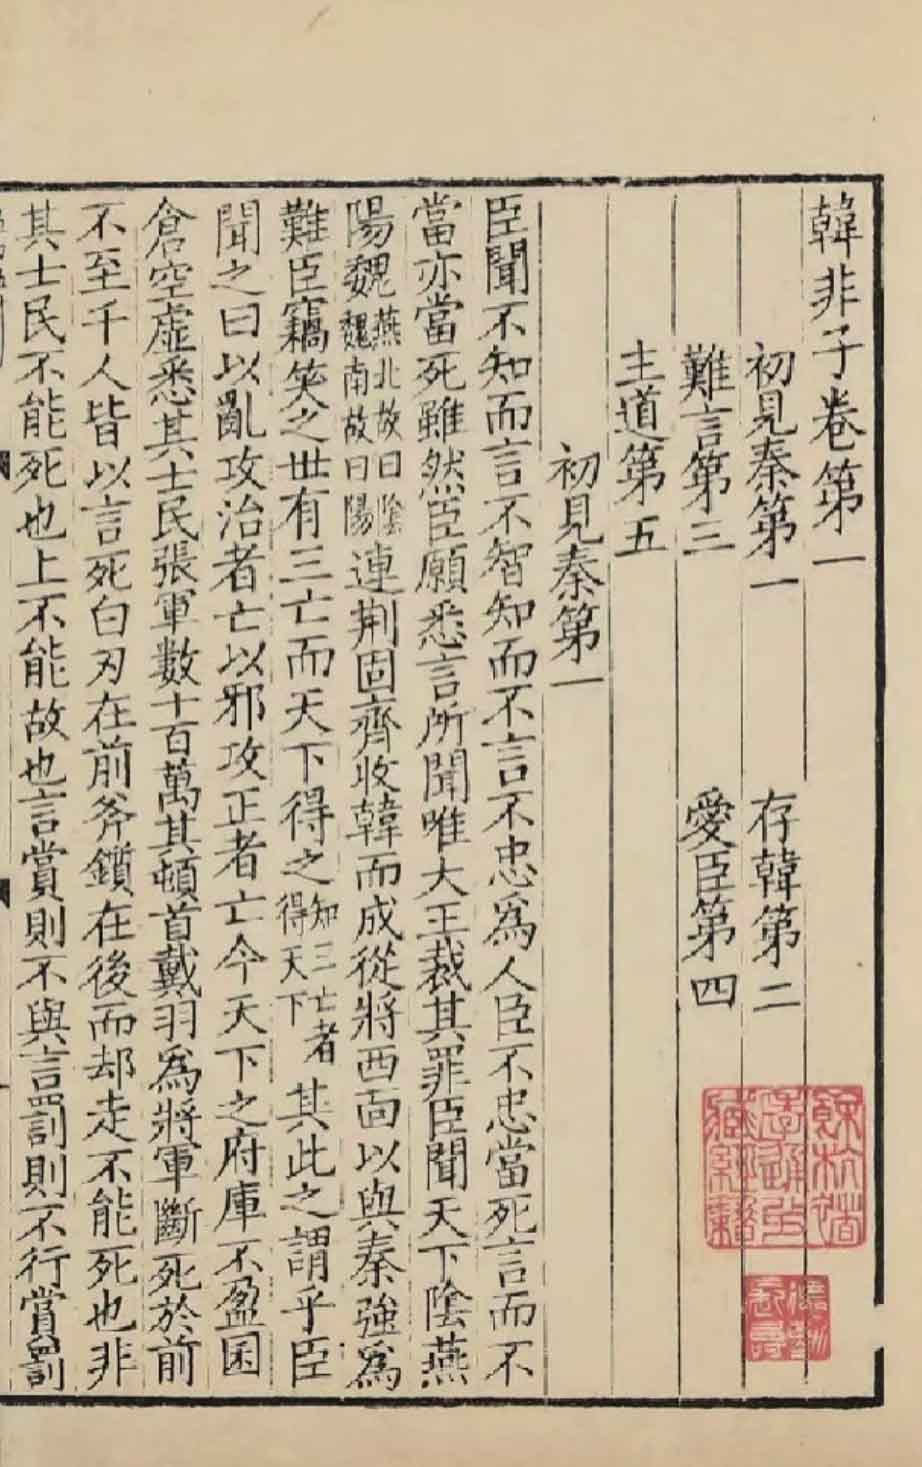 韓非子卷第一
初見秦第一 存韓第二
難言第三 愛臣第四
主道第五
初見秦第一
臣聞不知而言不智知而不言不忠爲人臣不忠當死言而不
當亦當死雖然臣願悉言所聞唯大王裁其罪臣聞天下陰燕
陽魏燕北故曰陰魏南故曰陽連荆固齊收韓而成從將西面以與秦強爲
難臣竊笑之世有三亡而天下得之知三亡者得天下其此之謂乎臣
聞之曰以亂攻治者亡以邪攻正者亡今天下之府庫不盈囷
倉空虛悉其士民張軍數十百萬其頓首戴羽爲將軍斷死於前
不至千人皆以言死白刃在前斧鑕在後而却走不能死也非
其士民不能死也上不能故也言賞則不與言罰則不行賞罰